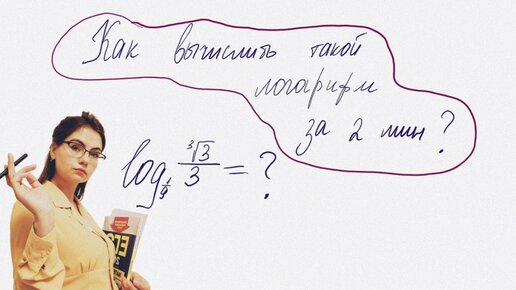 Как вычислить такой
логарифм
за 2 мин?
log_{1/9} ∛3/3 = ?